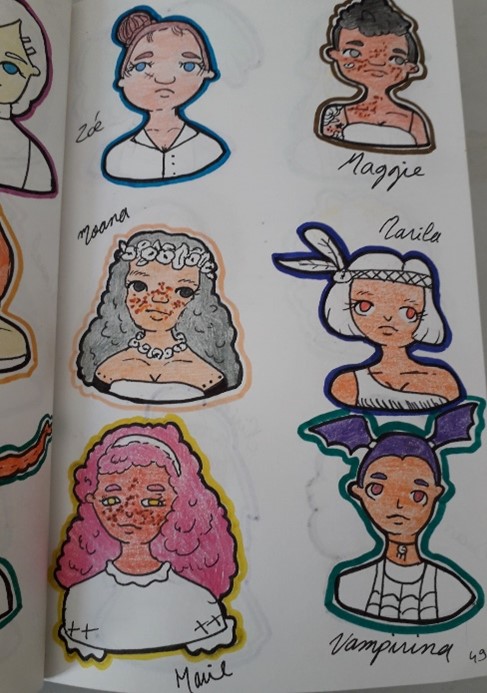 Zoé
Maggie
Moana
Narila
Marie
Vampirina
49